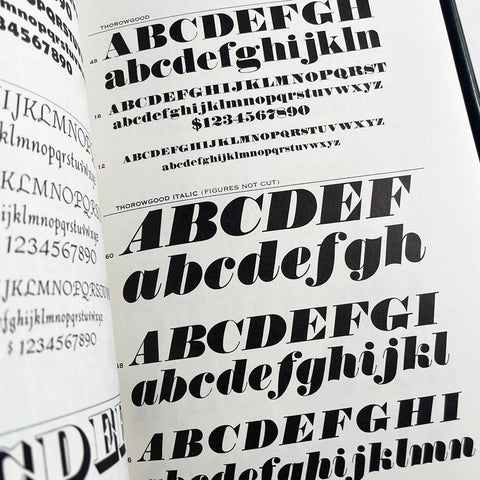 234567890
IJKLMNOP
mnopqrstuvwxyz
KLMNOPQRS
ijklmnopqrstuvwxyz
1234567890
JKLMNOPQRS
fghijklmnopqrstuvwxyz
$ 1234567890
CDE
THOROWGOOD
48
ABCDEFGH
abcdefghijkln
18
ABCDEFGHIJKLMNOPQRST
abcdefghijklmnopqrstuvwxyz
$1234567890
12
ABCDEFGHIJKLMNOPQRSTUVWXYZ
abcdefghijklmnopqrstuvwxyz
THOROWGOOD ITALIC (FIGURES NOT CUT)
60
ABCDEF
abcdefgh
48
ABCDEFGI
abcdefghijkl
ABCDEFGHI
abcdefghijklmn